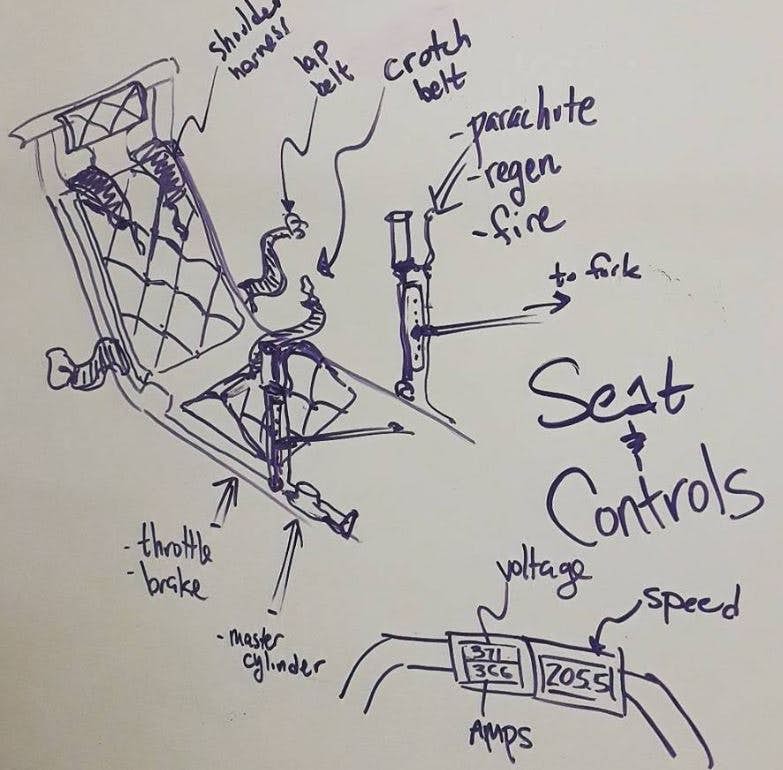 shoulder
harness
lap
belt
crotch
belt
-parachute
-regen
-fire
to fork
Seat
&
Controls
-throttle
-brake
-master
cylinder
voltage
speed
371
366
205.5
AMPS